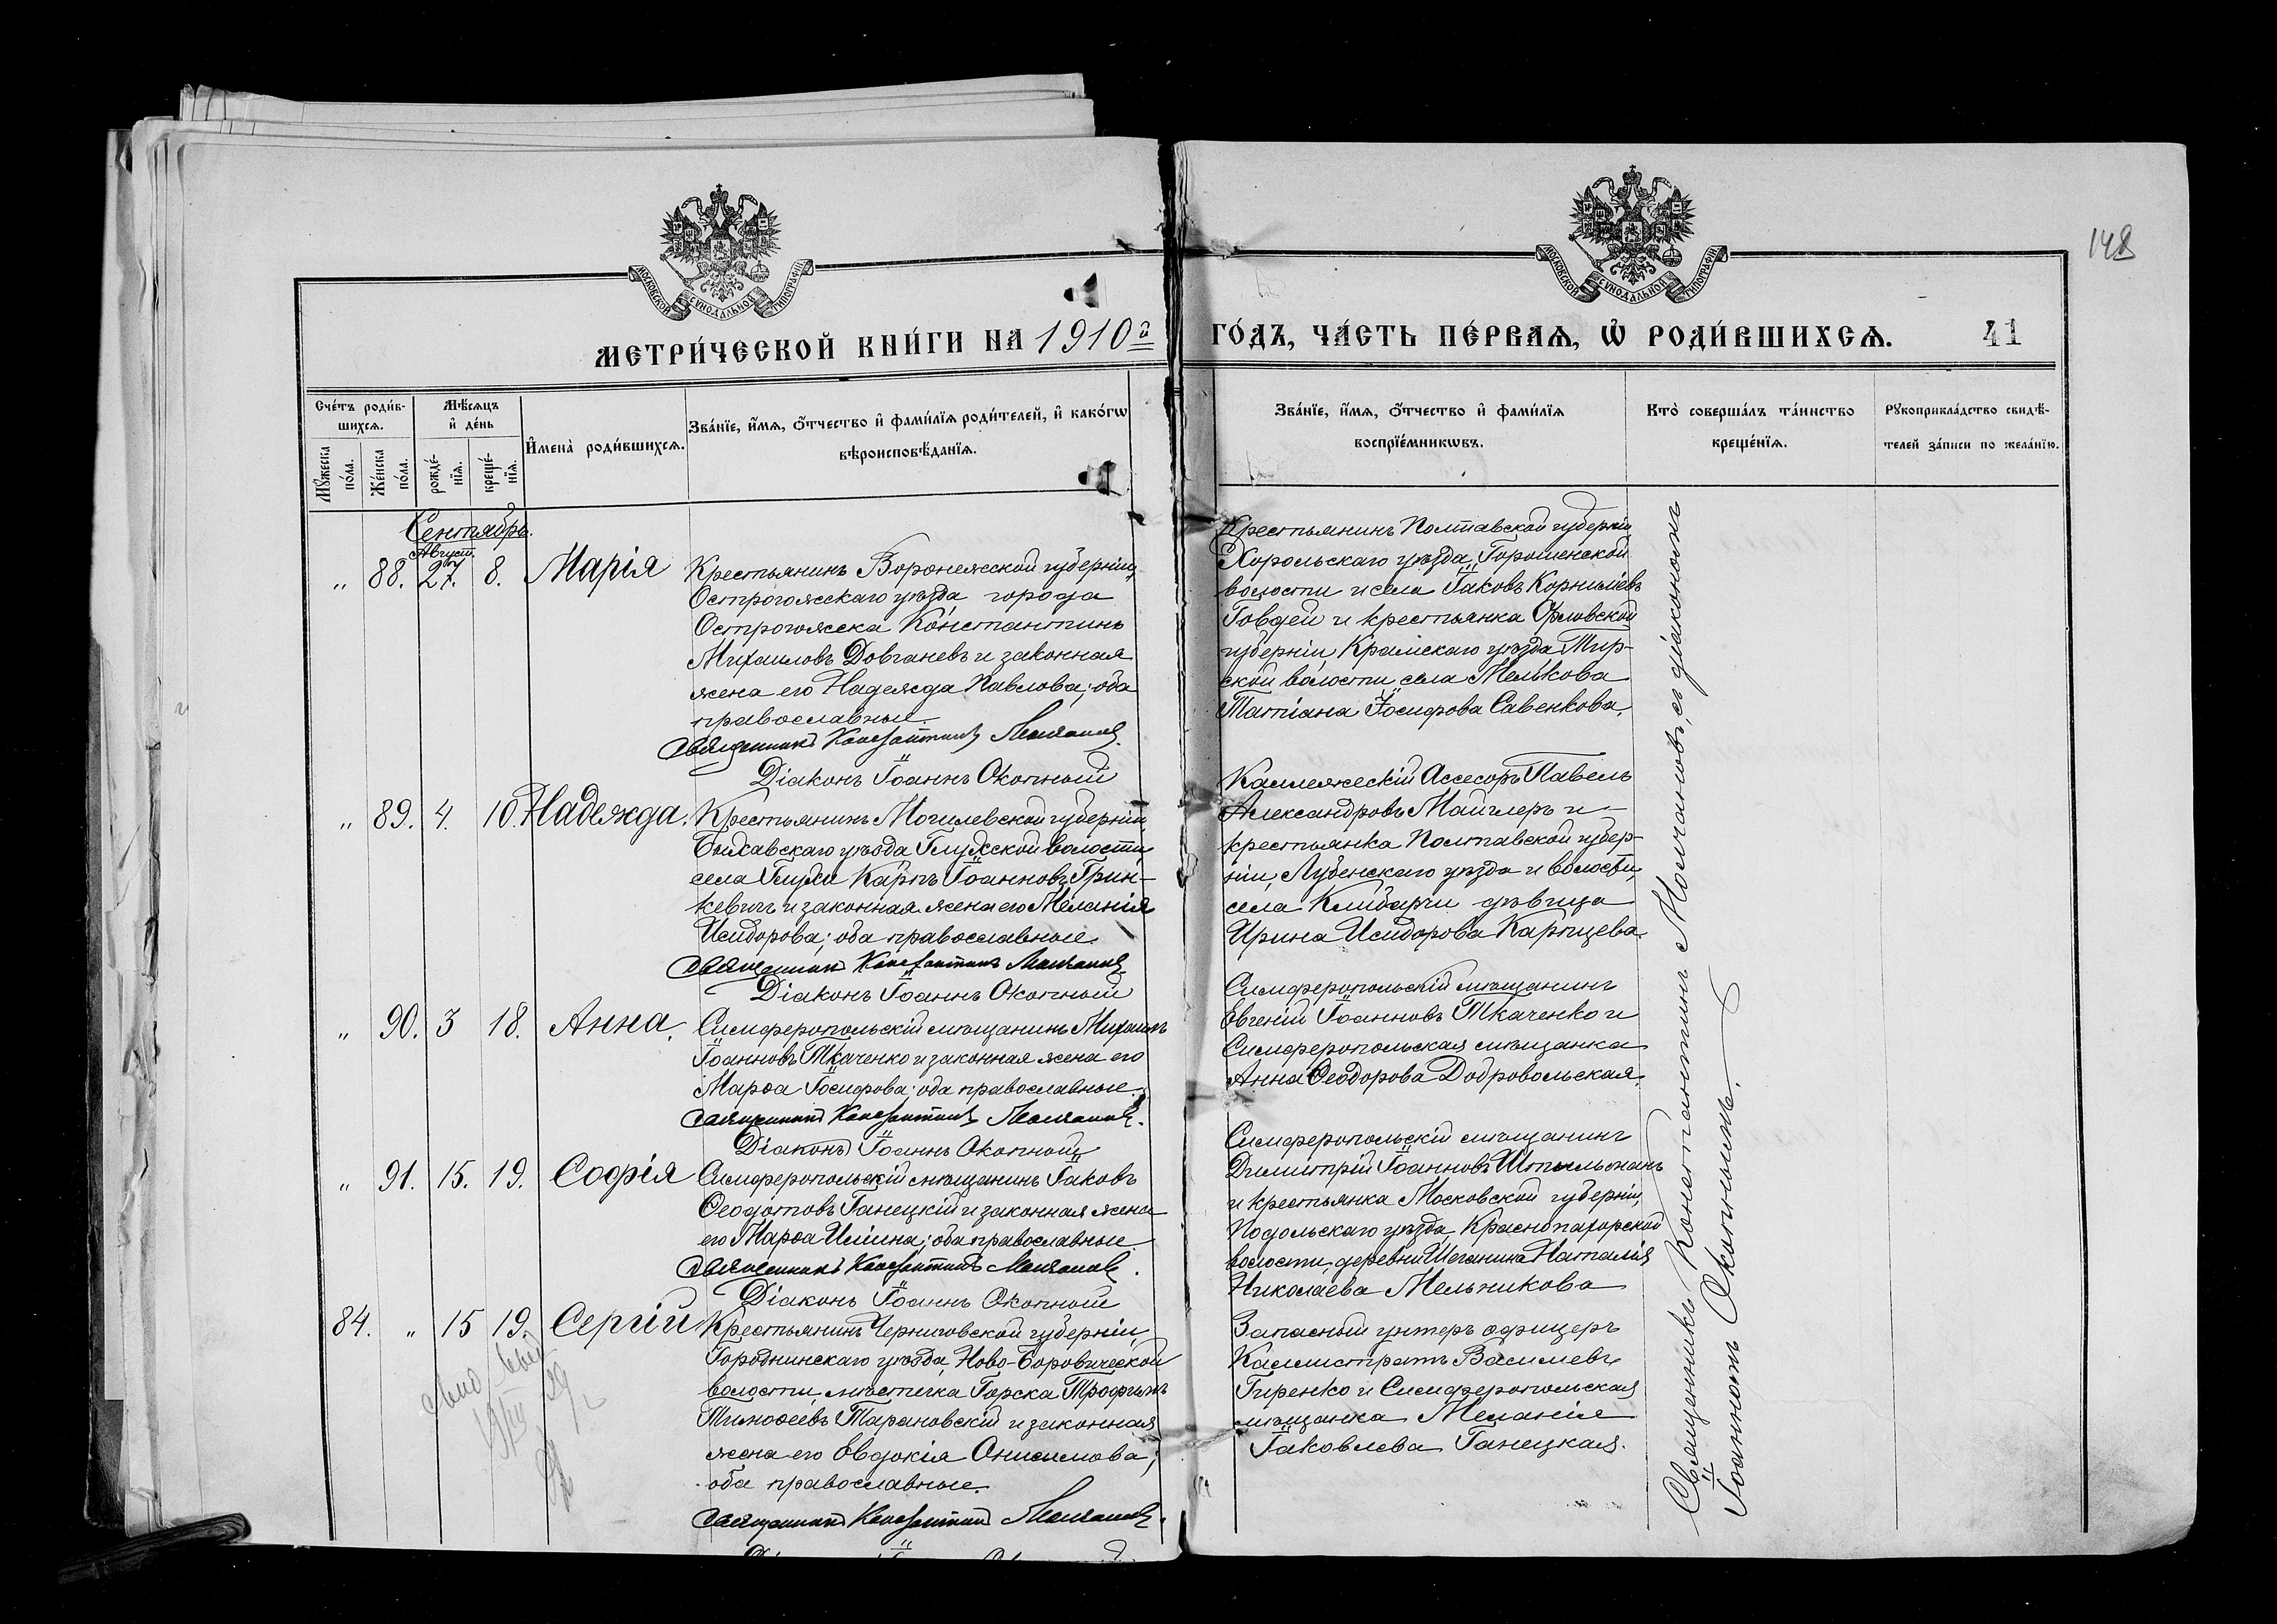 148
МОСКОВСКОЙ СѴНОДАЛЬНОЙ ТИПОГРАФІИ
МОСКОВСКОЙ СѴНОДАЛЬНОЙ ТИПОГРАФІИ
МЕТРИ́ЧЕСКОЙ КНИ́ГИ НА 1910й ГО́ДЪ, ЧА́СТЬ ПЕ́РВАѦ, Ѡ РОДИ́ВШИХСѦ. 41
Сче́тъ роди́в-
шихсѧ.
Мꙋ́жеска
по́ла.
Же́нска
по́ла.
Мѣ́сѧцъ
и҆ де́нь
рожде́-
нїѧ.
креще́-
нїѧ.
И҆мена̀ роди́вшихсѧ.
Зва́нїе, и҆́мѧ, ѻ҆́тчество и҆ фами́лїѧ роди́телей, и҆ како́гѡ
вѣроисповѣ́данїѧ.
Зва́нїе, и҆́мѧ, ѻ҆́тчество и҆ фами́лїѧ
воспрїе́мникѡвъ.
Кто̀ соверша́лъ та́инство
креще́нїѧ.
Рꙋкоприкла́дство свидѣ́-
телей за́писи по жела́нїю.
Сентябрь.
Август.
" 88. 27. 8. Марія
Крестьянинъ Воронежской губерніи,
Острогожскаго уѣзда города
Острогожска Константинъ
Михаиловъ Довганевъ и законная
жена его Надежда Павлова; оба
православные.
Священникъ Константинъ Молчановъ.
Діаконъ Іоаннъ Окопный
Крестьянинъ Полтавской губерніи,
Хорольскаго уѣзда, Горошенской
волости и села Іаковъ Корниліевъ
Говдей и крестьянка Орловской
губерніи, Крамскаго уѣзда
ской волости, села Мелькова
Татіана Іосифова Савенкова.
" 89. 4. 10. Надежда.
Крестьянинъ Могилевской губерніи,
Быхавскаго уѣзда Глухской волости,
села Глухи Карпъ Іоанновъ Грин-
кевичъ и законная жена его Меланія
Исидорова; оба православные.
Священникъ Константинъ Молчановъ
Діаконъ Іоаннъ Окопный
Коллежскій Ассесоръ Павелъ
Александровъ Майчлеръ и
крестьянка Полтавской губер-
ніи, Лубенскаго уѣзда и волости,
села дѣвица
Ирина Исидорова Карпцева.
" 90. 3 18. Анна.
Симферопольскій мѣщанинъ Михаилъ
Іоанновъ Ткаченко и законная жена его
Марѳа Іосифова; оба православные.
Священникъ Константинъ Молчановъ.
Діаконъ Іоаннъ Окопный
Симферопольскій мѣщанинъ
Евгеній Іоанновъ Ткаченко и
Симферопольская мѣщанка
Анна Ѳеодорова Добровольская.
" 91. 15. 19. Софія
Симферопольскій мѣщанинъ Іаковъ
Ѳеодотовъ Ганецкій и законная жена
его Марѳа Иліина; оба православные.
Священникъ Константинъ Молчановъ.
Діаконъ Іоаннъ Окопный
Симферопольскій мѣщанинъ
Димитрій Іоанновъ
и крестьянка Московской губерніи,
Подольскаго уѣзда, Краснопахорской
волости, деревни Шеганина Наталія
Николаева Мельникова
84. " 15 19. Сергій
Крестьянинъ Черниговской губерніи,
Городнинскаго уѣзда, Ново-Боровической
волости, мѣстечка Горска Трофимъ
Тимоѳеевъ Тарановскій и законная
жена его Евдокія Онисимова;
оба православные.
Священникъ Константинъ Молчановъ.
Запасный унтеръ офицеръ
Каллистратъ Василіевъ
Гиренко и Симферопольская
мѣщанка Меланія
Іаковлева Ганецкая.
Священникъ Константинъ Молчановъ, съ діакономъ
Іоанномъ Окопнымъ.